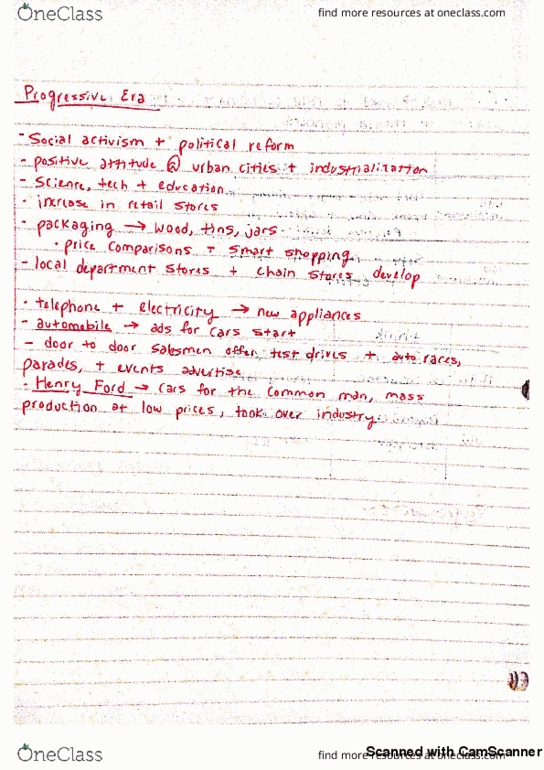 OneClass
find more resources at oneclass.com
Progressive Era
- Social activism + political reform
- positive attitude @ urban cities + industrialization
- Science, tech + education
- increase in retail stores
- packaging → wood, tins, jars
• price comparisons = smart shopping
- local department stores + chain stores develop
- telephone + electricity → new appliances
- automobile → ads for cars start
- door to door salesmen offer test drives + auto races,
parades, + events advertise
- Henry Ford → cars for the common man, mass
production at low prices, took over industry
OneClass
find more resources at oneclass.com
Scanned with CamScanner